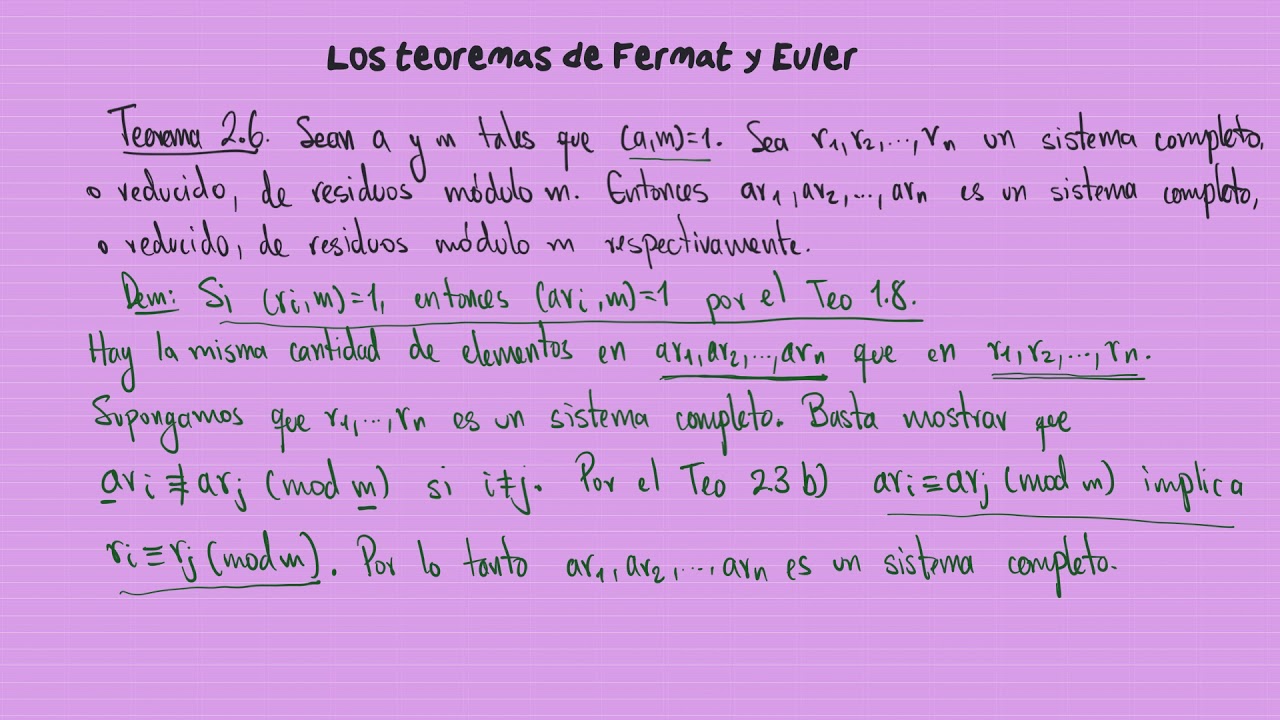 Los teoremas de Fermat y Euler
Teorema 2.6. Sean a y m tales que (a,m)=1. Sea r₁,r₂,...,rₙ un sistema completo,
o reducido, de residuos módulo m. Entonces ar₁,ar₂,...,arₙ es un sistema completo,
o reducido, de residuos módulo m respectivamente.
Dem: Si (rᵢ,m)=1, entonces (arᵢ,m)=1 por el Teo 1.8.
Hay la misma cantidad de elementos en ar₁,ar₂,...,arₙ que en r₁,r₂,...,rₙ.
Supongamos que r₁,...,rₙ es un sistema completo. Basta mostrar que
arᵢ≢arⱼ (mod m) si i≠j. Por el Teo 2.3 b) arᵢ≡arⱼ (mod m) implica
rᵢ≡rⱼ (mod m). Por lo tanto ar₁,ar₂,...,arₙ es un sistema completo.